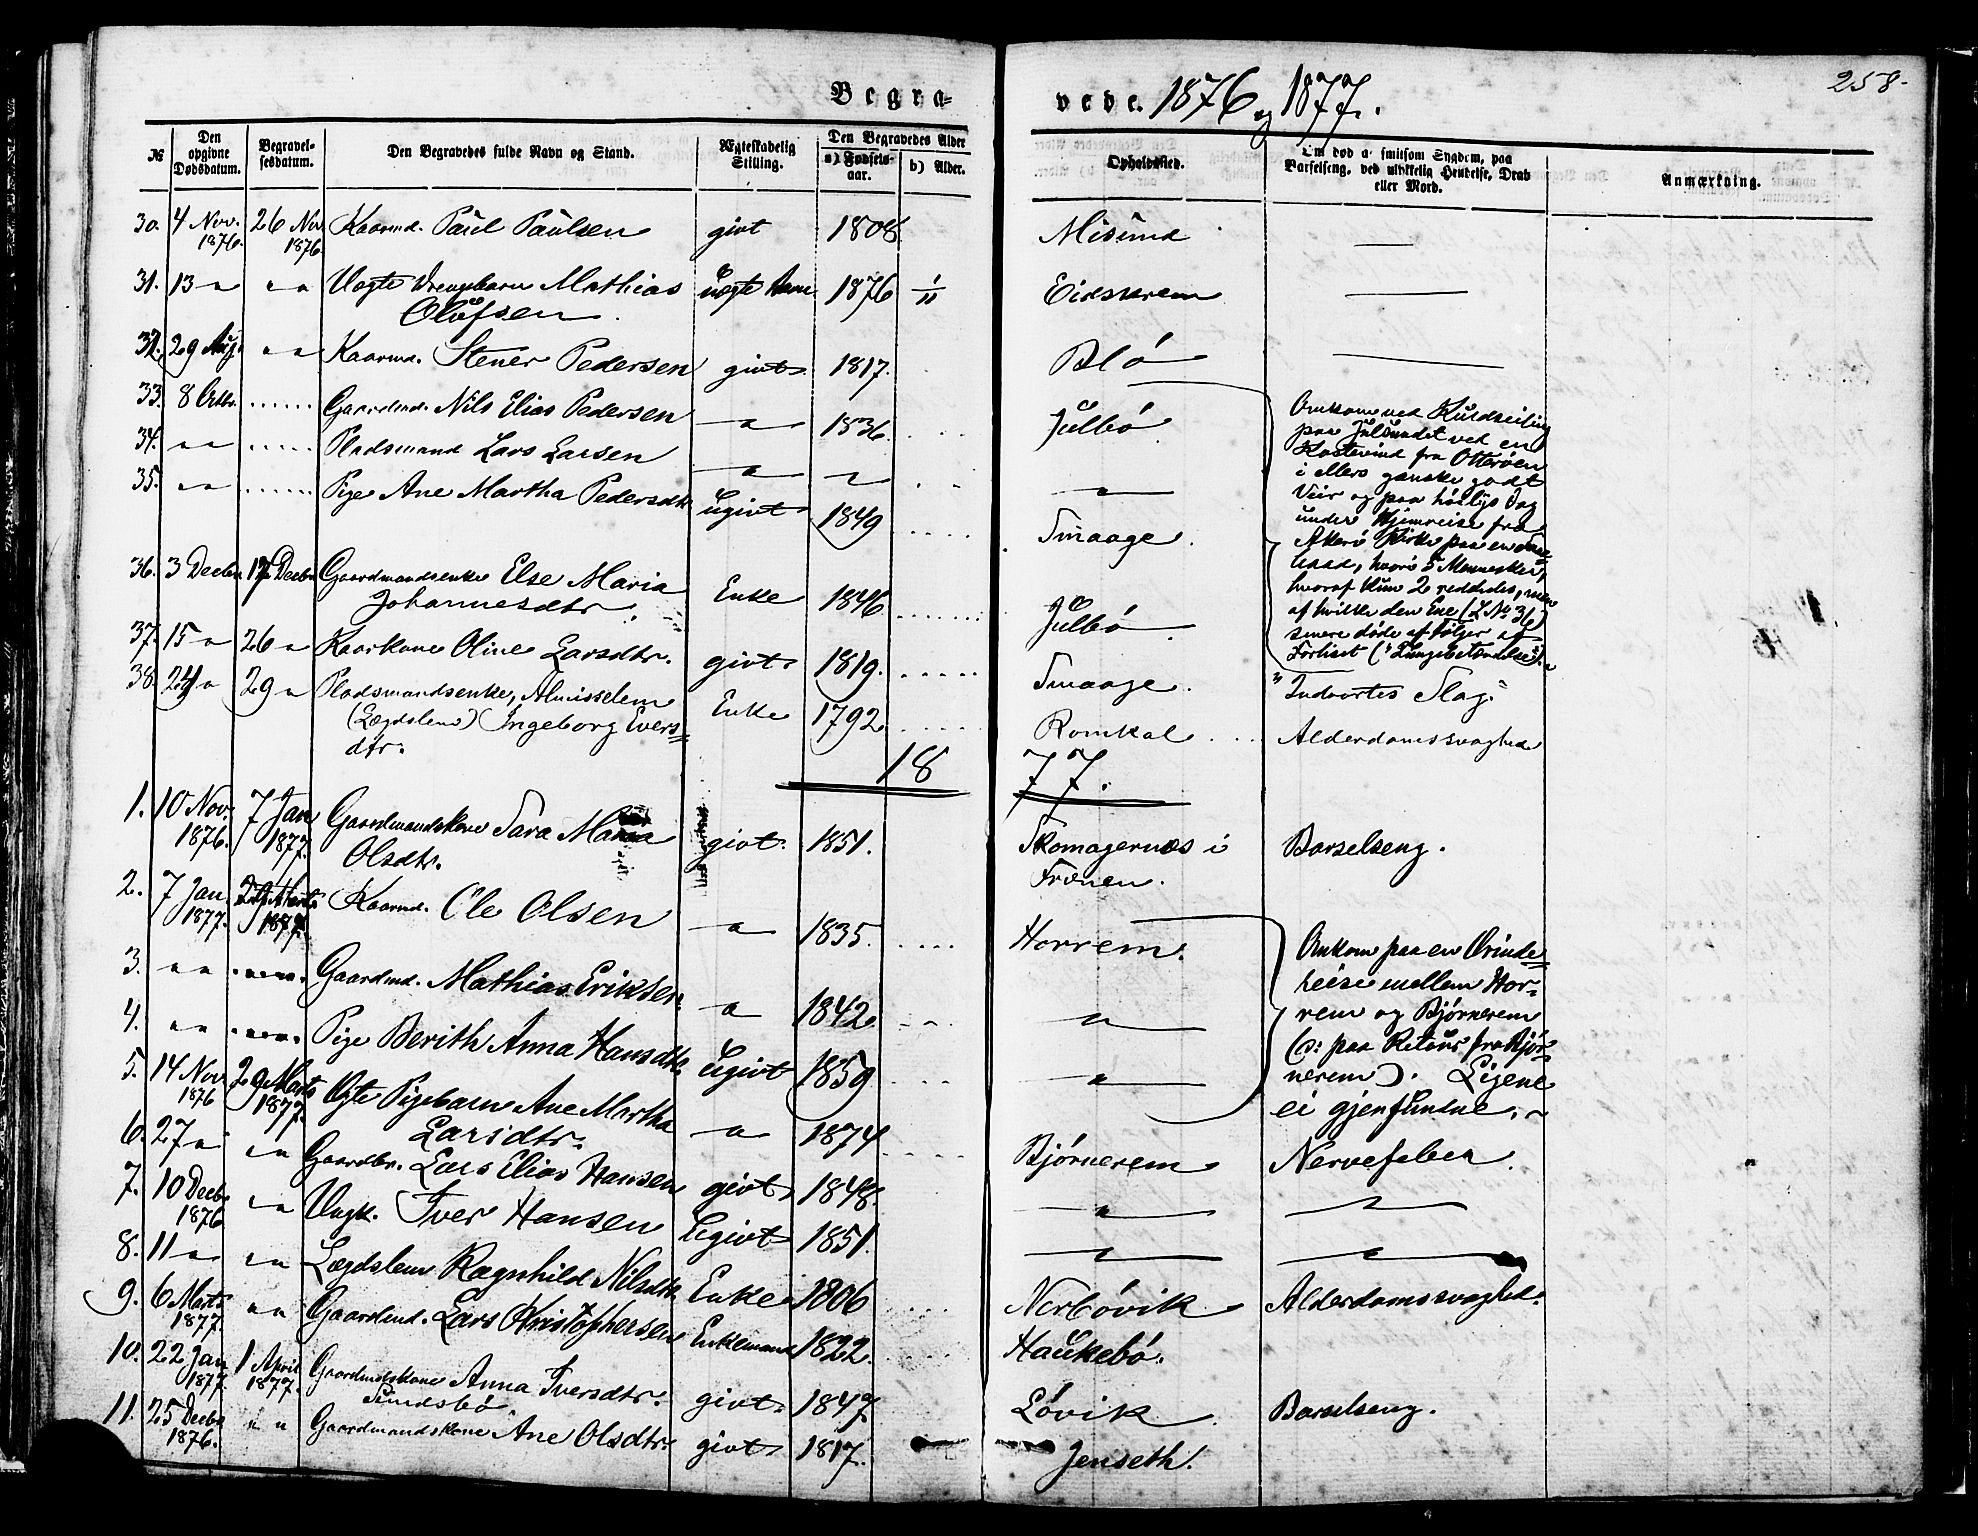 Begra-
vede. 1876 og 1877.
258.
№
Den opgivne Dødsdatum.
Begravelsesdatum.
Den Begravedes fulde Navn og Stand.
Ægteskabelig Stilling.
Den Begravedes Alder
a) Fødselsaar.
b) Alder.
Opholdssted.
Om død af smitsom Sygdom, paa Barselseng, ved ulykkelig Hændelse, Drab eller Mord.
Anmærkning.
30. 4 Nov. 1876. 26 Nov 1876 Kaarmd. Paul Paulsen givt 1808. Misund —
31. 13 " " " Uægte Drengebarn Mathias Olufsen uægte Barn 1876 1/11 Eidskrem —
32. 29 Aug. " " Kaarmd. Stener Pedersen givt 1817. Blø —
33. 8 Octbr. ...... Gaardmd. Nils Elias Pedersen " 1836. Julbø
34. " " ..... Pladsmand Lars Larsen " " "
35. " " ...... Pige Ane Martha Pedersdtr. Ugivt 1849 Smaage.
Omkom ved Kuldseiling
paa Julsundet ved en
Kastevind fra Otterøen
i ellers ganske godt
Veir og paa høilys Dag
under Hjemreise fra
Akerø Kirke paa en
baad, hvori 5 Mennesker,
hvoraf kun 2 reddedes, men
af hvilke den Ene (L. № 36)
senere døde af Følger af
Forliset
36. 3 Decbr. 17 Decbr. Gaardmandsenke Else Maria Johannesdtr. Enke 1846 Julbø
37. 15 " 26 " Kaarkone Oline Larsdtr. givt 1819. Smaage. "Indvortes Slag."
38. 24 " 29 " Pladsmandsenke, Almisselem (Lægdslem) Ingeborg Iversdtr. Enke 1792. Romkal Alderdomssvaghed
18
77.
1. 10 Nov. 1876. 7 Jan. 1877. Gaardmandskone Sara Maria Olsdtr. givt. 1851. Skomagernæs i Frænen. Barselseng.
2. 7 Jan. 1877. 1877. Kaarmd. Ole Olsen " 1835. Horrem.
3. " " Gaardmd. Mathias Eriksen " 1842. "
4. " " Pige Berith Anna Hansdtr. Ugivt 1859 "
Omkom paa en Ærinde-
reise mellem Hor-
rem og Bjørnerem
(ɔ: paa Retour fra Bjør-
nerem). Ligene
ei gjenfundne.
5. 14 Nov 1876 29 Marts 1877. Ægte Pigebarn Ane Martha Larsdtr. " 1874 Bjørnerem Nervefeber.
6. 27 " " " Gaardbr. Lars Elias Hansen givt 1848. " "
7. 10 Decbr. 1876 " " Ungk. Iver Hansen Ugivt 1851. " "
8. 11 " " " Lægdslem Ragnhild Nilsdtr. Enke 1806 Nerbøvik Alderdomssvaghed.
9. 6 Marts 1877. " " Gaardmd. Lars Kristophersen Enkemand 1822. Haukebø.
10. 22 Jan 1877. 1 April 1877. Gaardmdskone Anna Iversdtr. Sundsbø givt. 1847. Løvik Barselseng.
11. 25 Decbr. 1876. " " Gaardmandskone Ane Olsdtr. givt 1817. Jenseth.